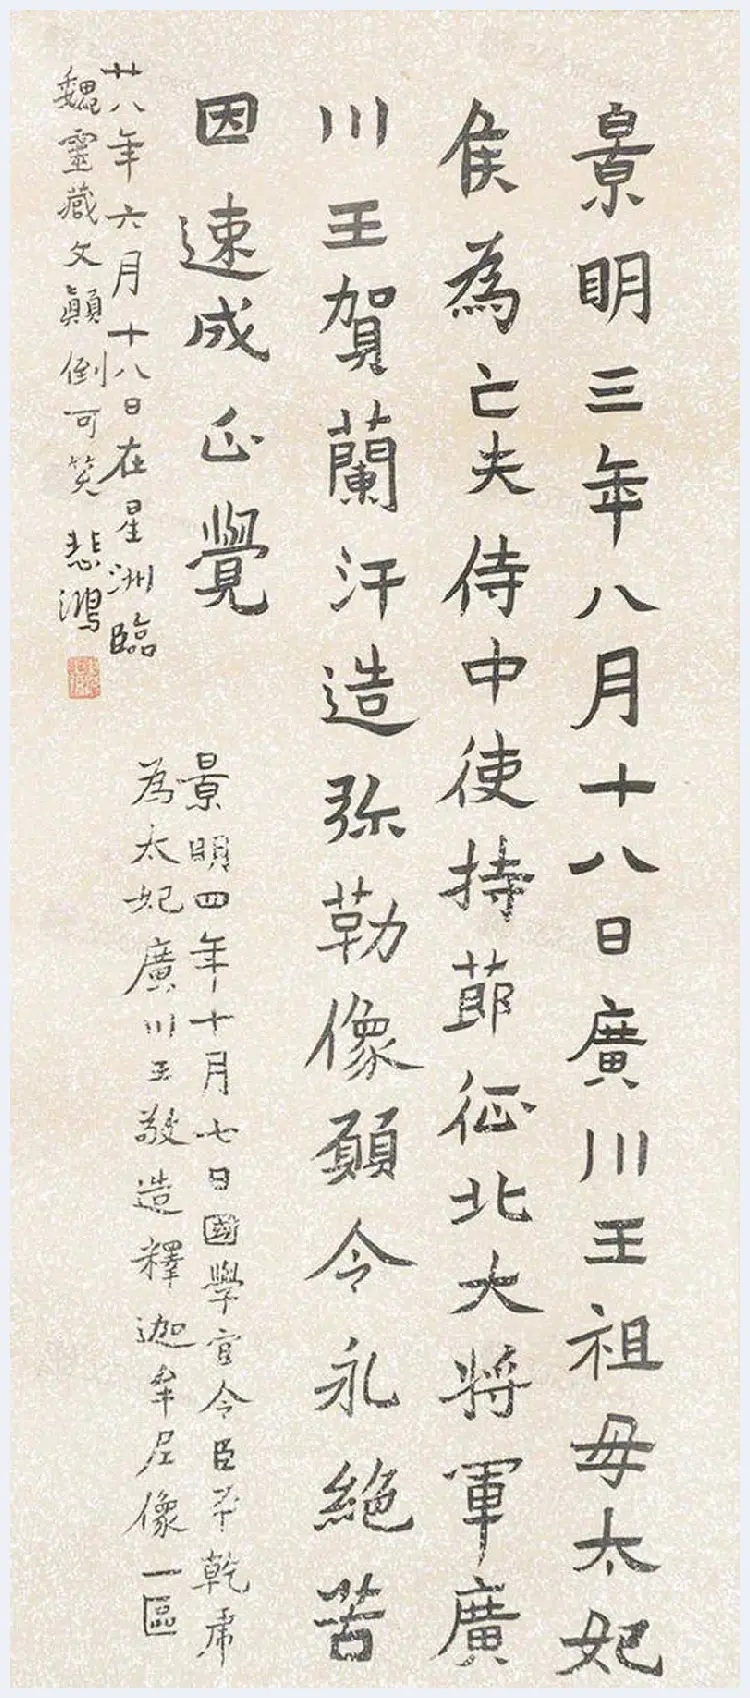 景明三年八月十八日廣川王祖母太妃
侯為亡夫侍中使持節征北大將軍廣
川王賀蘭汗造弥勒像願令永絕苦
因速成正覺
景明四年十月七日國學官令臣平乾虎
為太妃廣川王敬造釋迦牟尼像一區
廿八年六月十八日在星洲臨
魏靈藏文顛倒可笑 悲鴻